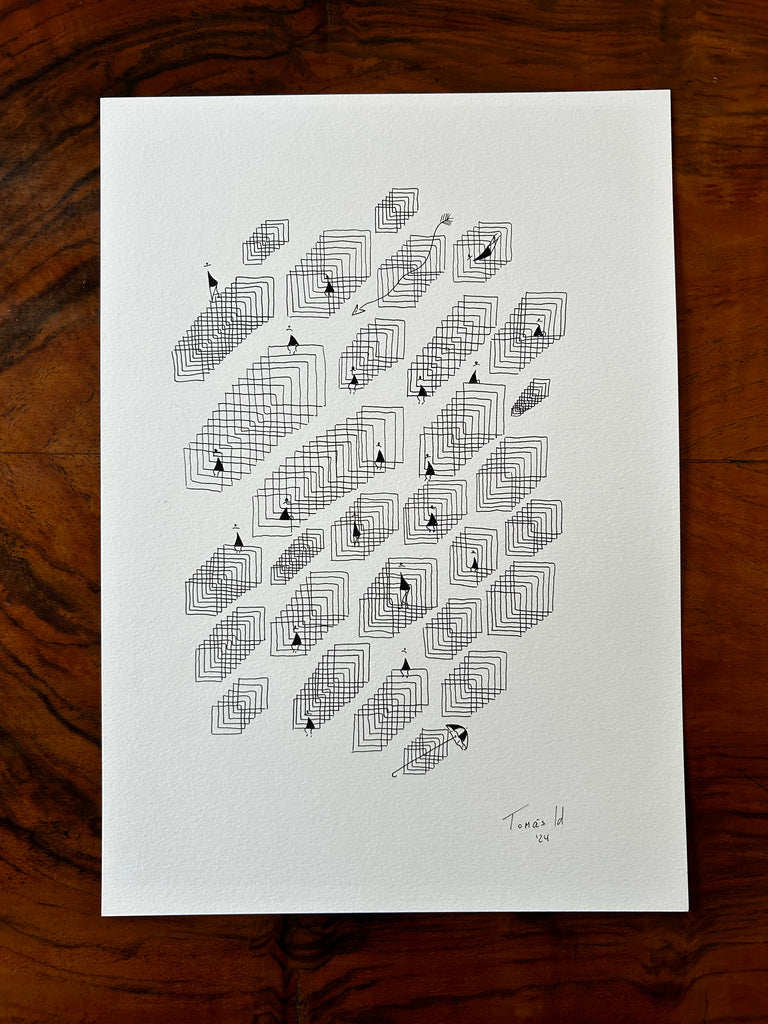 Tomás Id
'24